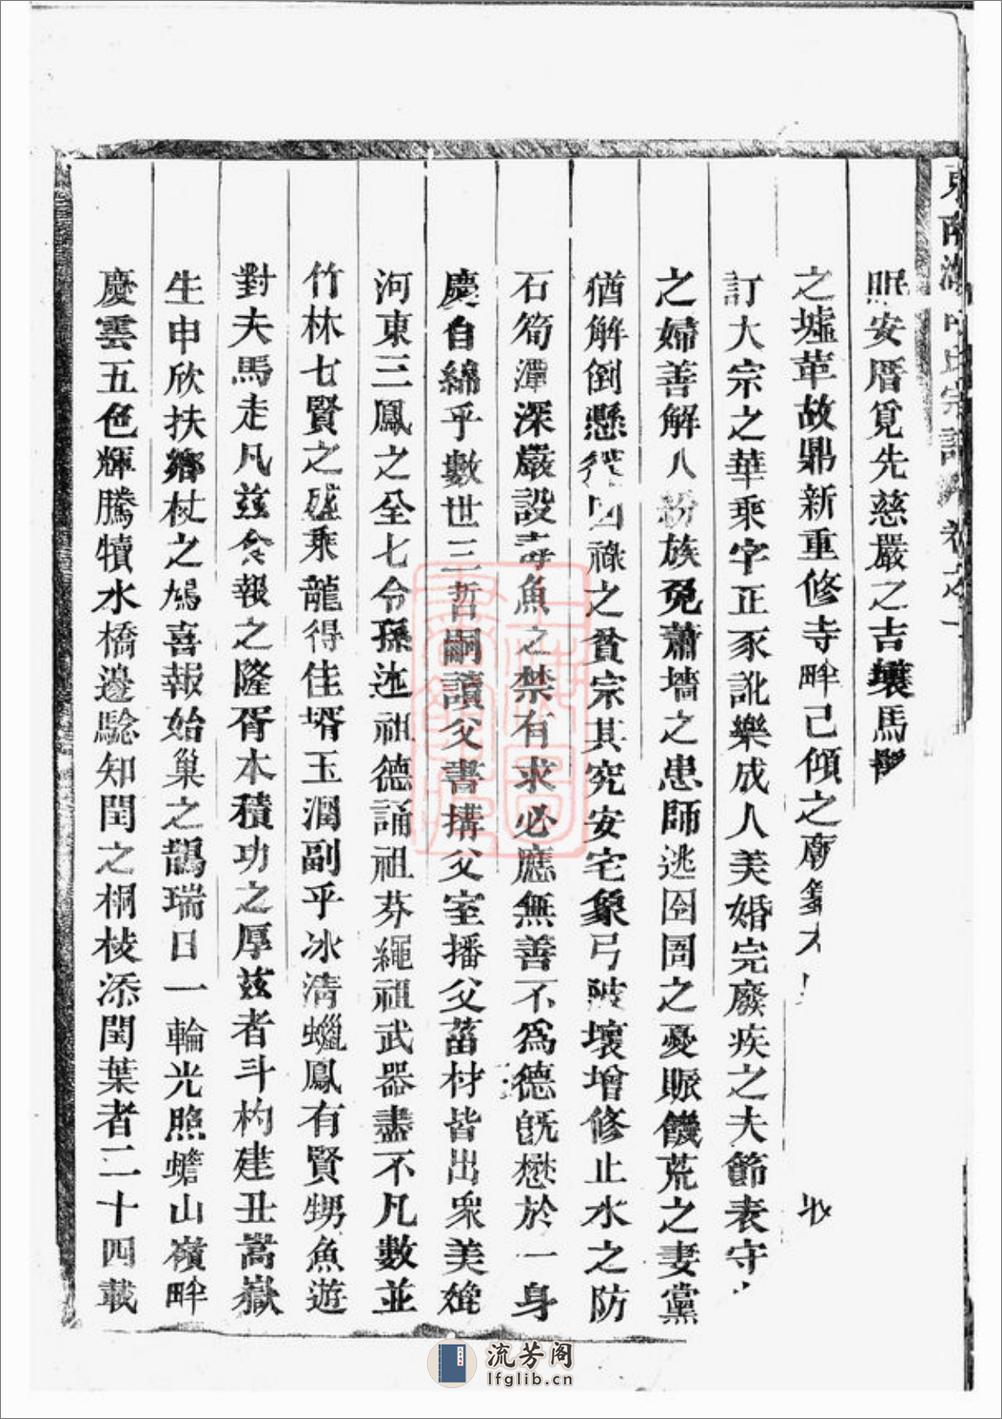 眠安厝覓先慈嚴之吉壤馬鬣
之墟革故鼎新重修寺畔已傾之廟
訂大宗之華乘字正豕訛樂成人美婚完廢疾之夫節表守
之婦善解人紛族免蕭墻之患師逃囹圄之憂賑饑荒之妻黨
猶解倒懸從凶祿之貧宗其究安宅象弓陂壞增修止水之防
石筍潭深嚴設毒魚之禁有求必應無善不爲德旣懋於一身
慶自綿乎數世三哲嗣讀父書搆父室播父菑材皆出衆美雖
河東三鳳之全七令孫述祖德誦祖芬繩祖武器盡不凡數並
竹林七賢之盛乘龍得佳壻玉潤副乎冰清蠟鳳有賢甥魚遊
對夫馬走凡茲食報之隆胥本積功之厚茲者斗杓建丑嵩嶽
生申欣扶鄉杖之鳩喜報始巢之鵲瑞日一輪光照蟾山嶺畔
慶雲五色輝騰犢水橋邊驗知閏之桐枝添閏葉者二十四載
流芳阁
lfglib.cn